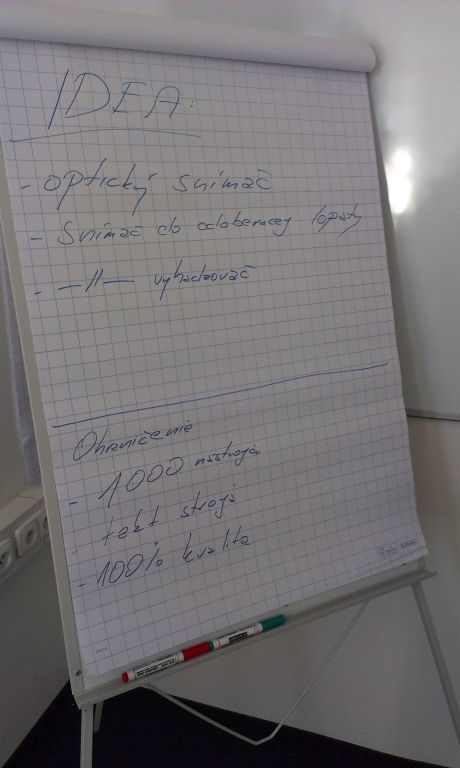 IDEA:
- optický snímač
- Snímač do odoberacej lopaty
- —//— vyhadzovač
Ohraničenie
- 1000 nástrojov
- takt stroja
- 100% kvalita